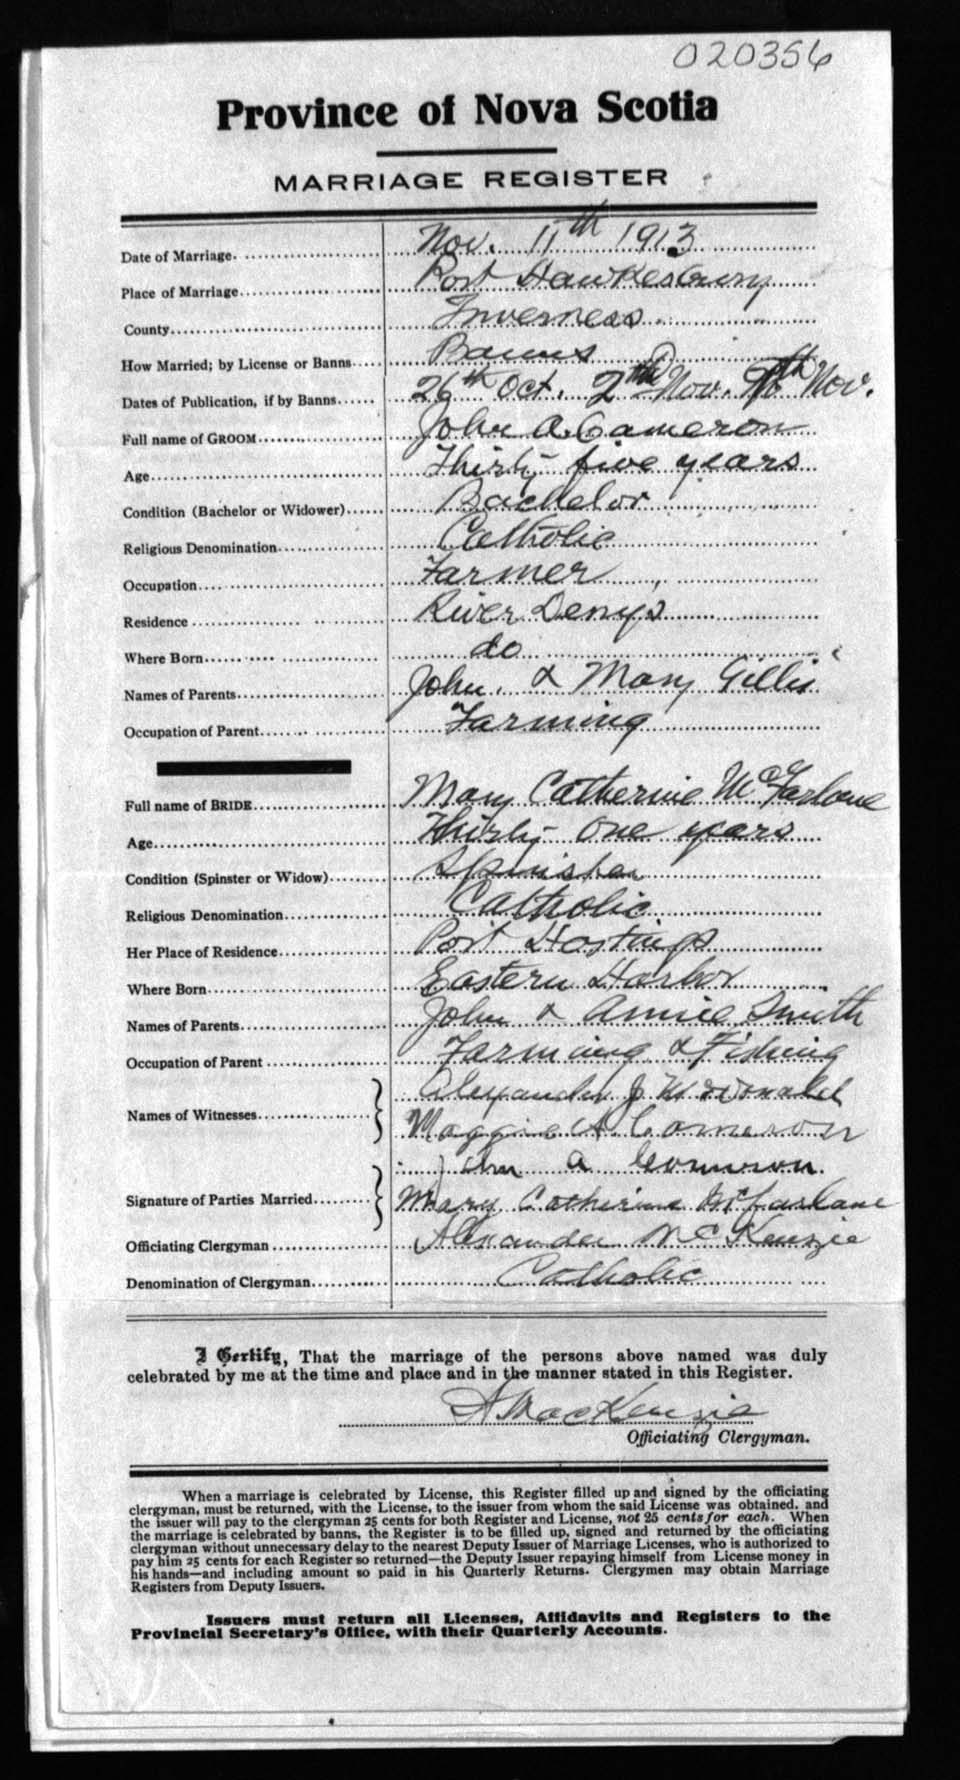 020356
Province of Nova Scotia
MARRIAGE REGISTER
Date of Marriage. Nov. 11th 1913
Place of Marriage Port Hawkesbury
County Inverness
How Married; by License or Banns Banns
Dates of Publication, if by Banns 26th Oct. 2nd Nov. 9th Nov.
Full name of GROOM John A. Cameron
Age Thirty five years
Condition (Bachelor or Widower) Bachelor
Religious Denomination Catholic
Occupation Farmer
Residence River Denys
Where Born do
Names of Parents John. & Mary Gillis
Occupation of Parent Farming
Full name of BRIDE Mary Catherine McFarlane
Age Thirty one years
Condition (Spinster or Widow) Spinster
Religious Denomination Catholic
Her Place of Residence Port Hastings
Where Born Eastern Harbor
Names of Parents John & Annie Smith
Occupation of Parent Farming & Fishing
Names of Witnesses Alexander J McDonald
Maggie A. Cameron
John A Cameron
Signature of Parties Married Mary Catherine McFarlane
Officiating Clergyman Alexander McKenzie
Denomination of Clergyman Catholic
I Certify, That the marriage of the persons above named was duly
celebrated by me at the time and place and in the manner stated in this Register.
A MacKenzie
Officiating Clergyman.
When a marriage is celebrated by License, this Register filled up and signed by the officiating
clergyman, must be returned, with the License, to the issuer from whom the said License was obtained, and
the issuer will pay to the clergyman 25 cents for both Register and License, not 25 cents for each. When
the marriage is celebrated by banns, the Register is to be filled up, signed and returned by the officiating
clergyman without unnecessary delay to the nearest Deputy Issuer of Marriage Licenses, who is authorized to
pay him 25 cents for each Register so returned—the Deputy Issuer repaying himself from License money in
his hands—and including amount so paid in his Quarterly Returns. Clergymen may obtain Marriage
Registers from Deputy Issuers.
Issuers must return all Licenses, Affidavits and Registers to the
Provincial Secretary's Office, with their Quarterly Accounts.